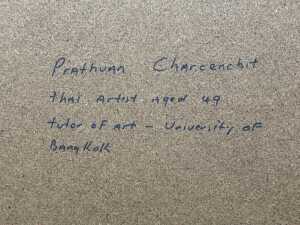 Prathuan Charcenchit
thai Artist aged 49
tutor of art – University of
Bangkok